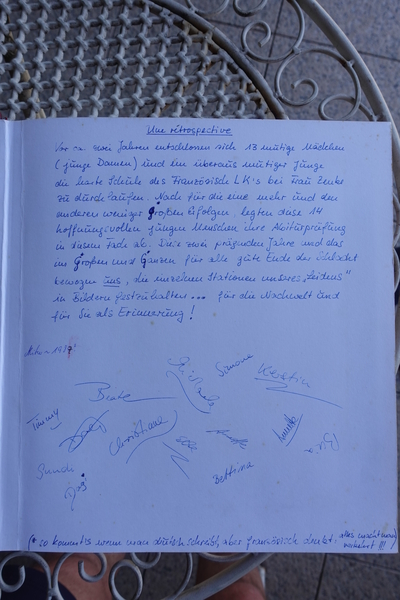 Une rétrospective
Vor ca zwei Jahren entschlossen sich 13 mutige Mädchen
(junge Damen) und ein überaus mutiger Junge
die harte Schule des Französisch LK's bei Frau
zu durchlaufen. Nach für die eine mehr und den
anderen weniger großen Erfolgen, legten diese 14
hoffnungsvollen jungen Menschen ihre Abiturprüfung
in diesem Fach ab. Diese zwei prägenden Jahre und das
im Großen und Ganzen für alle gute Ende der Schlacht
bewogen uns, die einzelnen Stationen unseres „Leidens"
in Bildern festzuhalten... für die Nachwelt und
für Sie als Erinnerung!
Tammy Beate Simone Kerstin
Christiane
Sandi Bettina
(* so kommt es wenn man deutsch schreibt, aber französisch denkt: alles macht man
verkehrt !!!)